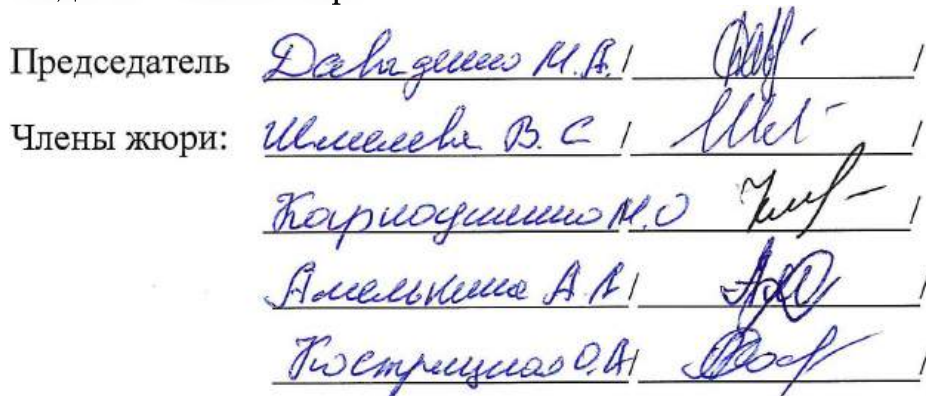 Председатель Давиденко М.А. / /
Члены жюри: Шмелева В. С / /
М.О /
Амелькина А. А / /
Кострицкая О.А / /